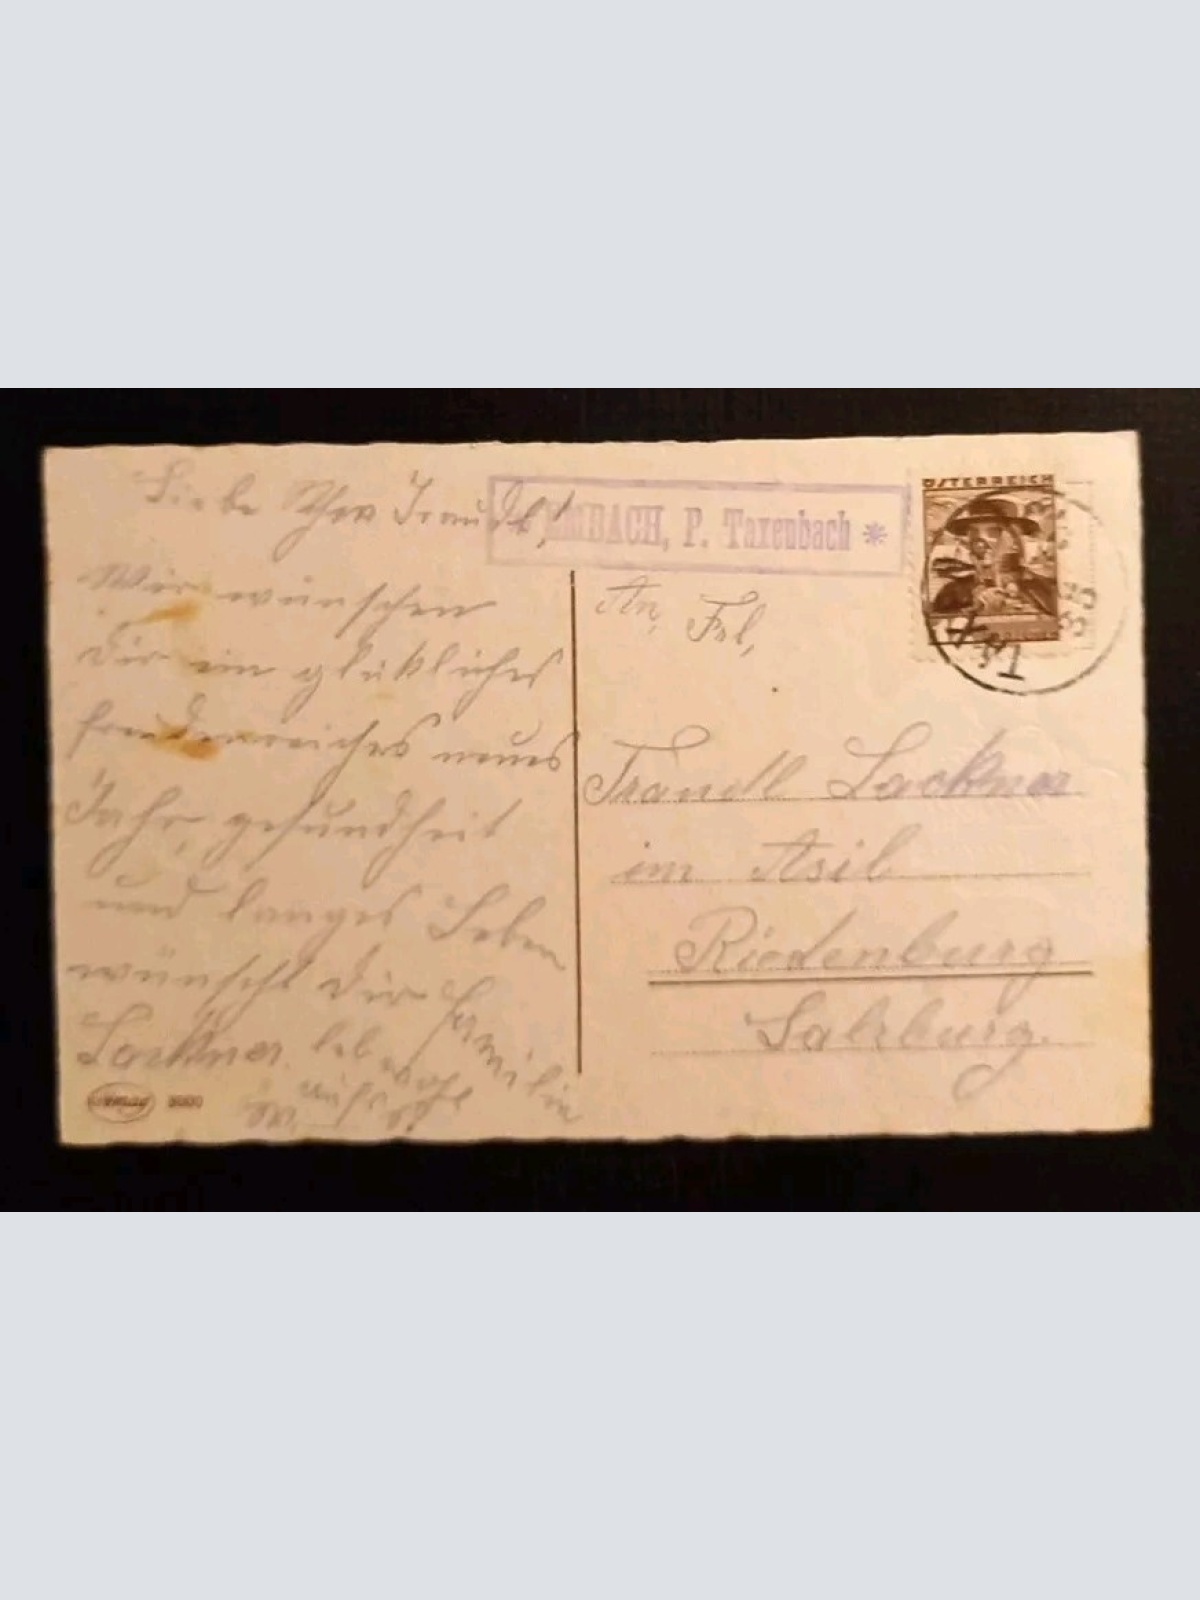 Liebe Traudl!
Wir wünschen
Dir ein glükliches
freudenreiches neues
Jahr, gesundheit
und langes Leben
wünscht Dir Familie
Lackner. leb wohl
EMBACH, P. Taxenbach *
ÖSTERREICH
TAX
An, Frl,
Traudl Lackner
im Asil
Riedenburg
Salzburg.